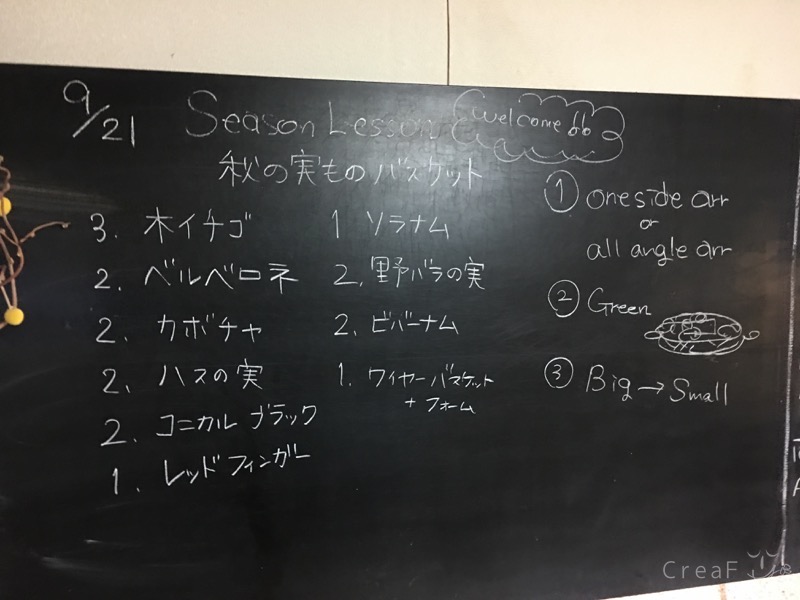 9/21 Season Lesson welcome
秋の実ものバスケット
3. 木イチゴ
2. ベルベロネ
2. カボチャ
2. ハスの実
2. コニカル ブラック
1. レッド フィンガー
1 ソラナム
2. 野バラの実
2. ビバーナム
1. ワイヤーバスケット
+ フォーム
① one side arr
or
all angle arr
② Green
③ Big → Small
CreaF